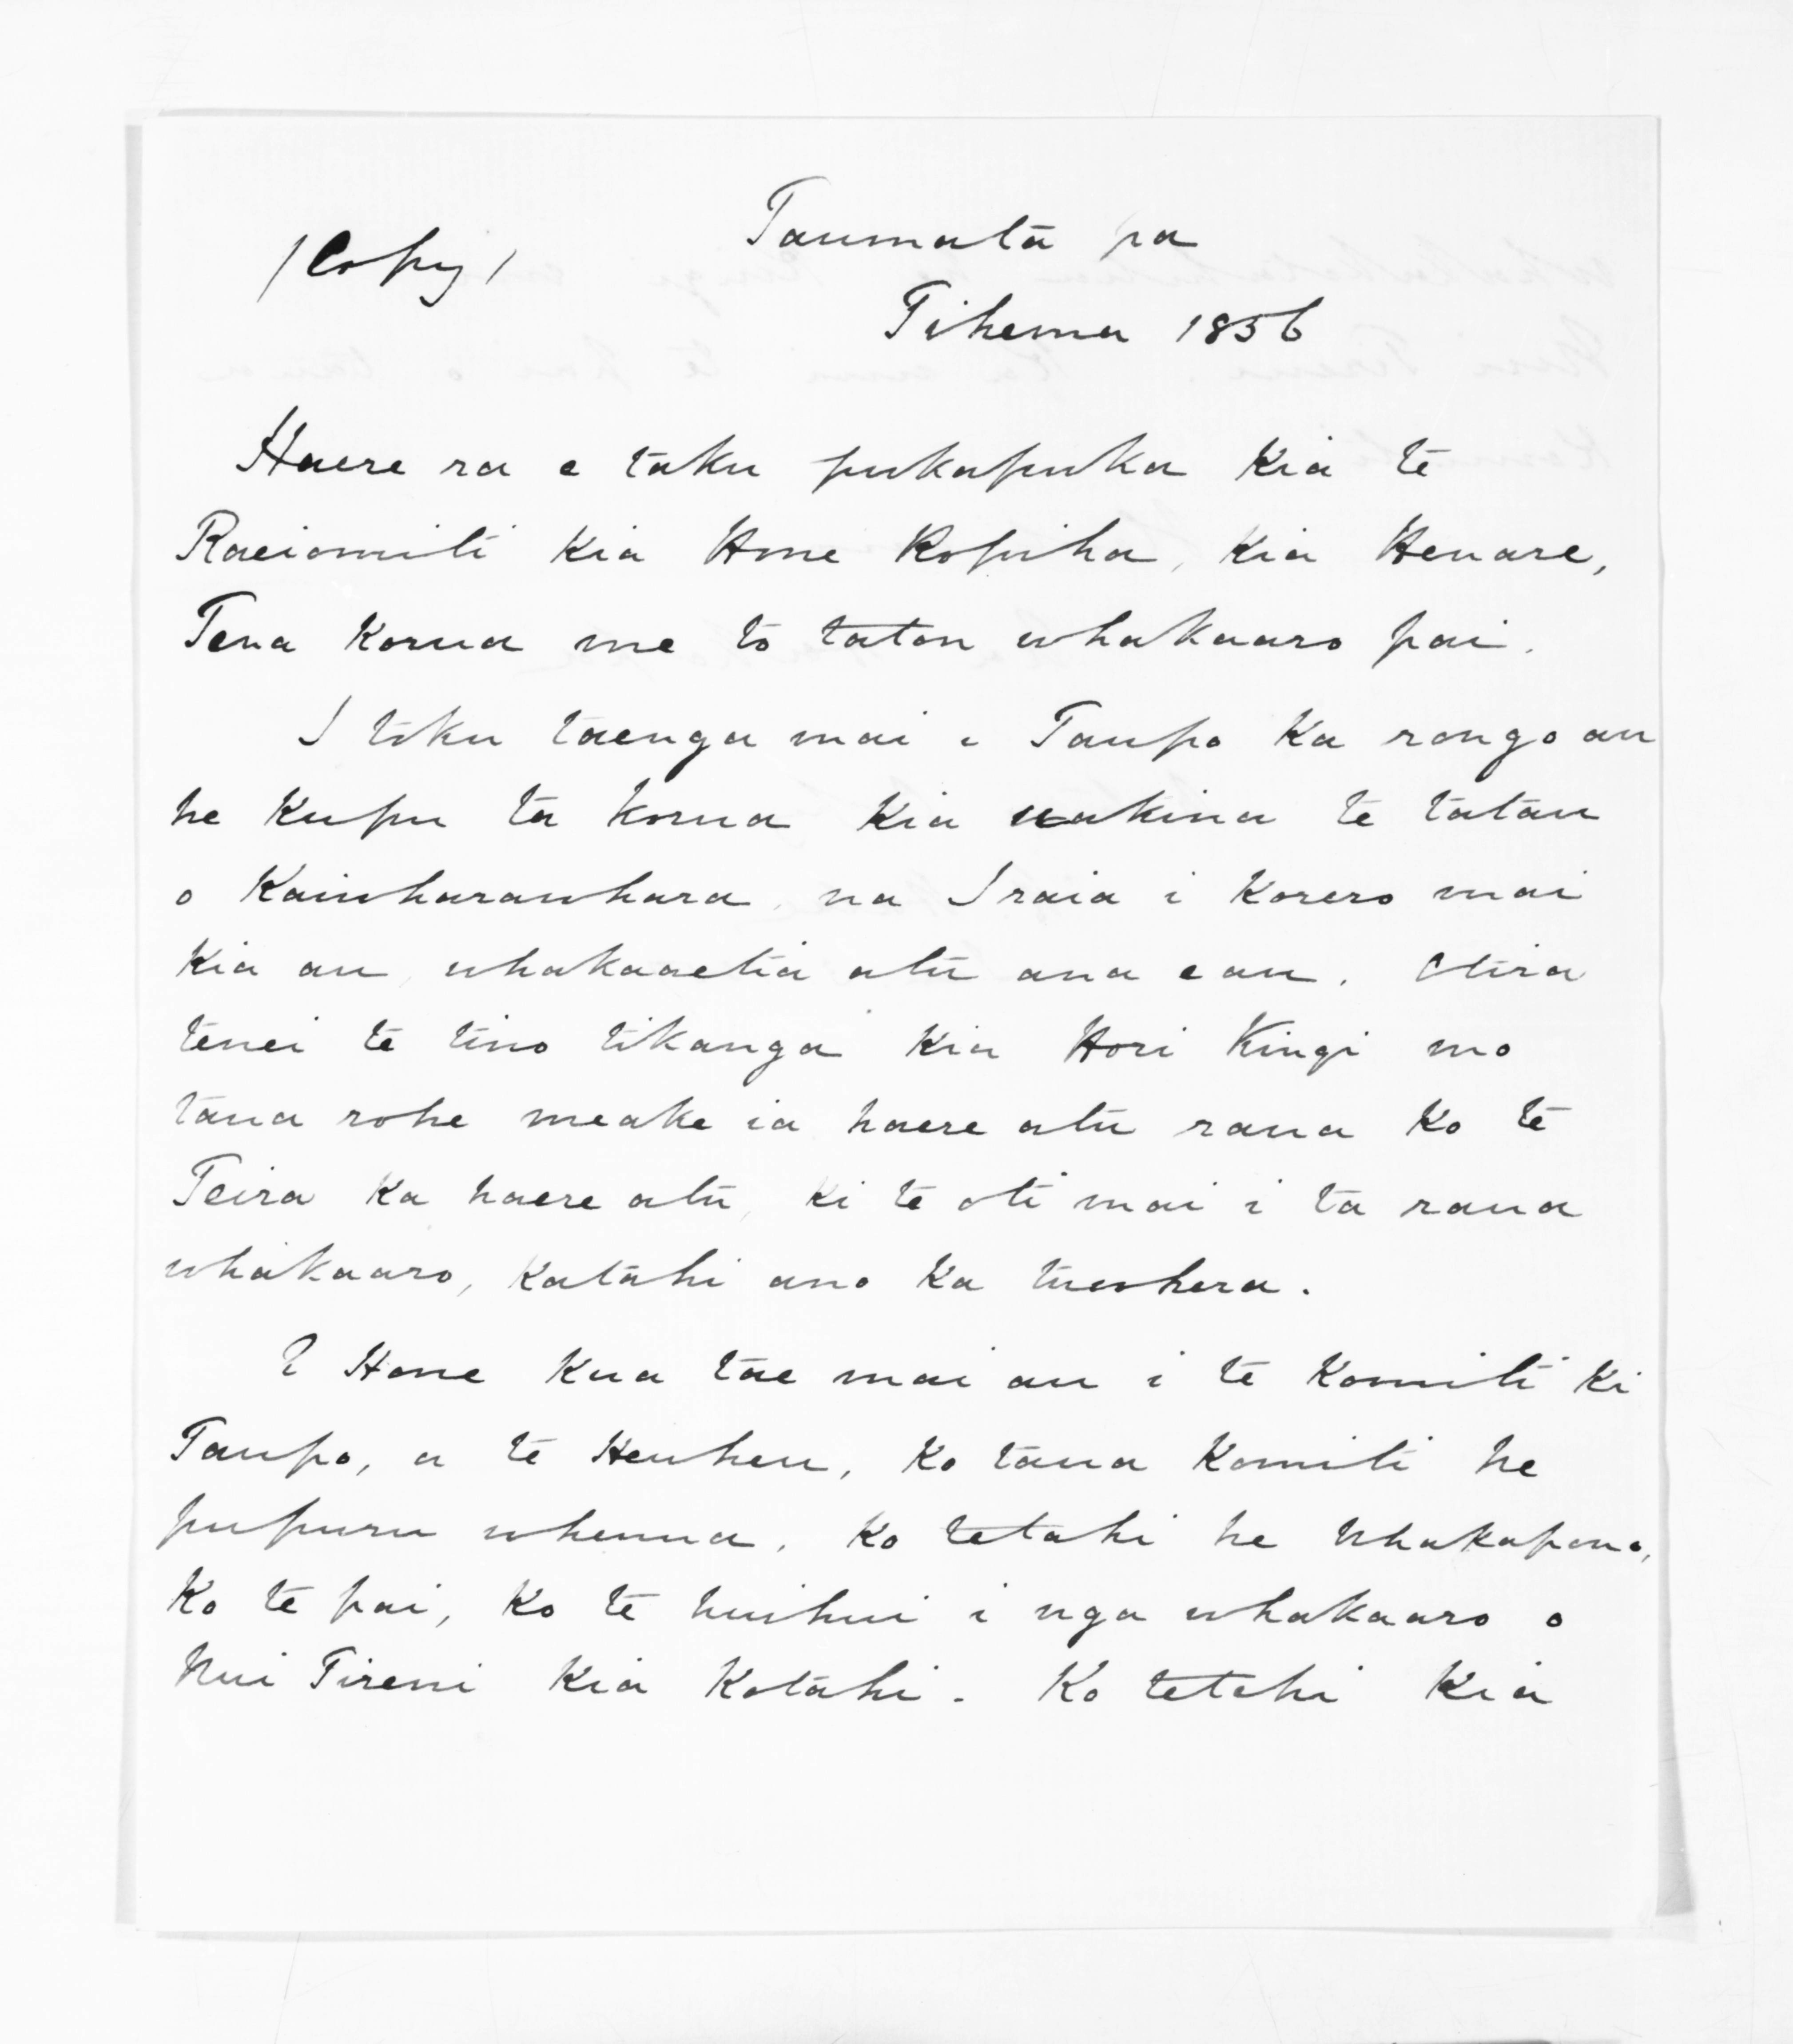 Taumata pa
/Copy/
Tihema 1856
Haere ra e taku pukapuka Kia te
Raeiomiti Kia Hone Ropiha, Kia Henare,
Tena Korua me to tatou whakaaro pai.
I toku taenga mai i Taupo Ka rongo au
he Kupu ta korua Kia uakina te tatau
o Kaiwharawhara, na Iraia i Korero mai
Kia au, whakaaetia atu ana e au. Otira
tenei te tino tikanga Kia Hori Kingi mo
tana rohe meake ia haere atu raua Ko te
Teira Ka haere atu, Ki te oti mai i ta raua
whakaaro, Katahi ano Ka tuwhera.
E Hone Kua tae mai au i te Komiti Ki
Taupo, a te Heuheu, Ko tana Komiti he
pupuru whenua, Ko tetahi he Whakapono,
Ko te pai, Ko te huihui i nga whakaaro o
Nui Tireni Kia Kotahi. Ko tetehi Kia